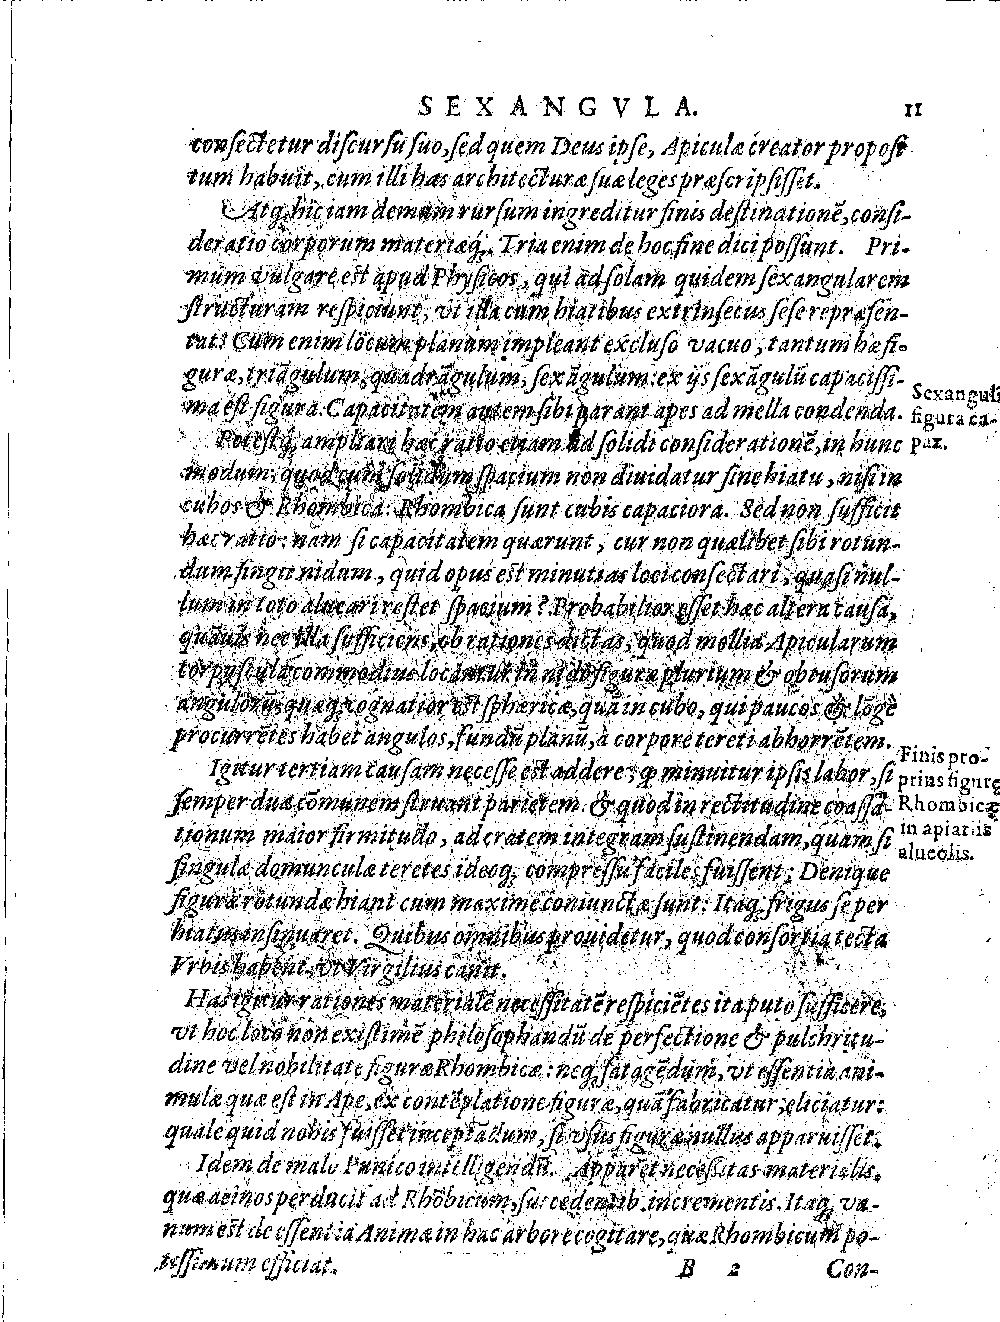 SEXANGVLA. 11
consectetur discursu suo, sed quem Deus ipse, Apiculæ creator proposi
tum habuit, cum illi has architecturæ suæ leges præscripsisset.
Atq; hic iam demum rursum ingreditur finis destinationē, consi-
deratio corporum materiæq́;. Tria enim de hoc fine dici possunt. Pri-
mum vulgare est apud Physicos, qui ad solam quidem sexangularem
structuram respiciunt, vt illa cum hiatibus extrinsecus sese repræsen-
tat: Cum enim locum planum impleant excluso vacuo, tantum hæ fi-
guræ, triāgulum, quadrāgulum, sexāgulum: ex ijs sexāgulū capacissi-
ma est figura. Capacitatem autem sibi parant apes ad mella condenda.
Sexanguli
figura ca-
pax.
Potestq́; ampliari hæc ratio etiam ad solidi considerationē, in hunc
modum; quod cum solidum spacium non diuidatur sine hiatu, nisi in
cubos & Rhombica: Rhombica sunt cubis capaciora. Sed non sufficit
hæc ratio: nam si capacitatem quærunt, cur non quælibet sibi rotun-
dum fingit nidum, quid opus est minutias loci consectari, quasi nul-
lum in toto alueari restet spacium? Probabilior esset hæc altera causa,
quāuis nec illa sufficiens, ob rationes dictas, quod mollia Apicularum
corpuscula commodius locantur in nido figuræ plurium & obtusorum
angulorū, quæq; cognatior est sphæricæ, quā in cubo, qui paucos & lōgè
procurrētes habet angulos, fundū planū, à corpore tereti abhorrētem.
Igitur tertiam causam necesse est addere; ꝙ minuitur ipsis labor, si
semper duæ cōmunem struant parietem. & quod in rectitudine coassa-
tionum maior firmitudo, ad cratem integram sustinendam, quam si
singulæ domunculæ teretes ideoq; compressu faciles fuissent; Denique
Finis pro-
prius figuræ
Rhombicæ
in apiariis
alueolis.
figuræ rotundæ hiant cum maxime coniunctæ sunt: Itaq; frigus se per
hiatus insinuaret. Quibus omnibus prouidetur, quod consortia tecta
Vrbis habent, vt Virgilius canit.
Has igitur rationes materialē necessitatē respiciētes ita puto sufficere,
vt hoc loco non existimē philosophandū de perfectione & pulchritu-
dine vel nobilitate figuræ Rhombicæ: neq; satagēdum, vt essentia ani-
mulæ quæ est in Ape, ex contēplatione figuræ, quā fabricatur, eliciatur:
quale quid nobis fuisset inceptādum, si vsus figuræ nullus apparuisset.
Idem de malo Punico intelligendū. Apparet necessitas materialis,
quæ acinos perducit ad Rhōbicum, succedentib. incrementis. Itaq; va-
num est de essentia Animæ in hac arbore cogitare, quæ Rhombicum po-
tissimum efficiat.
B 2 Con-